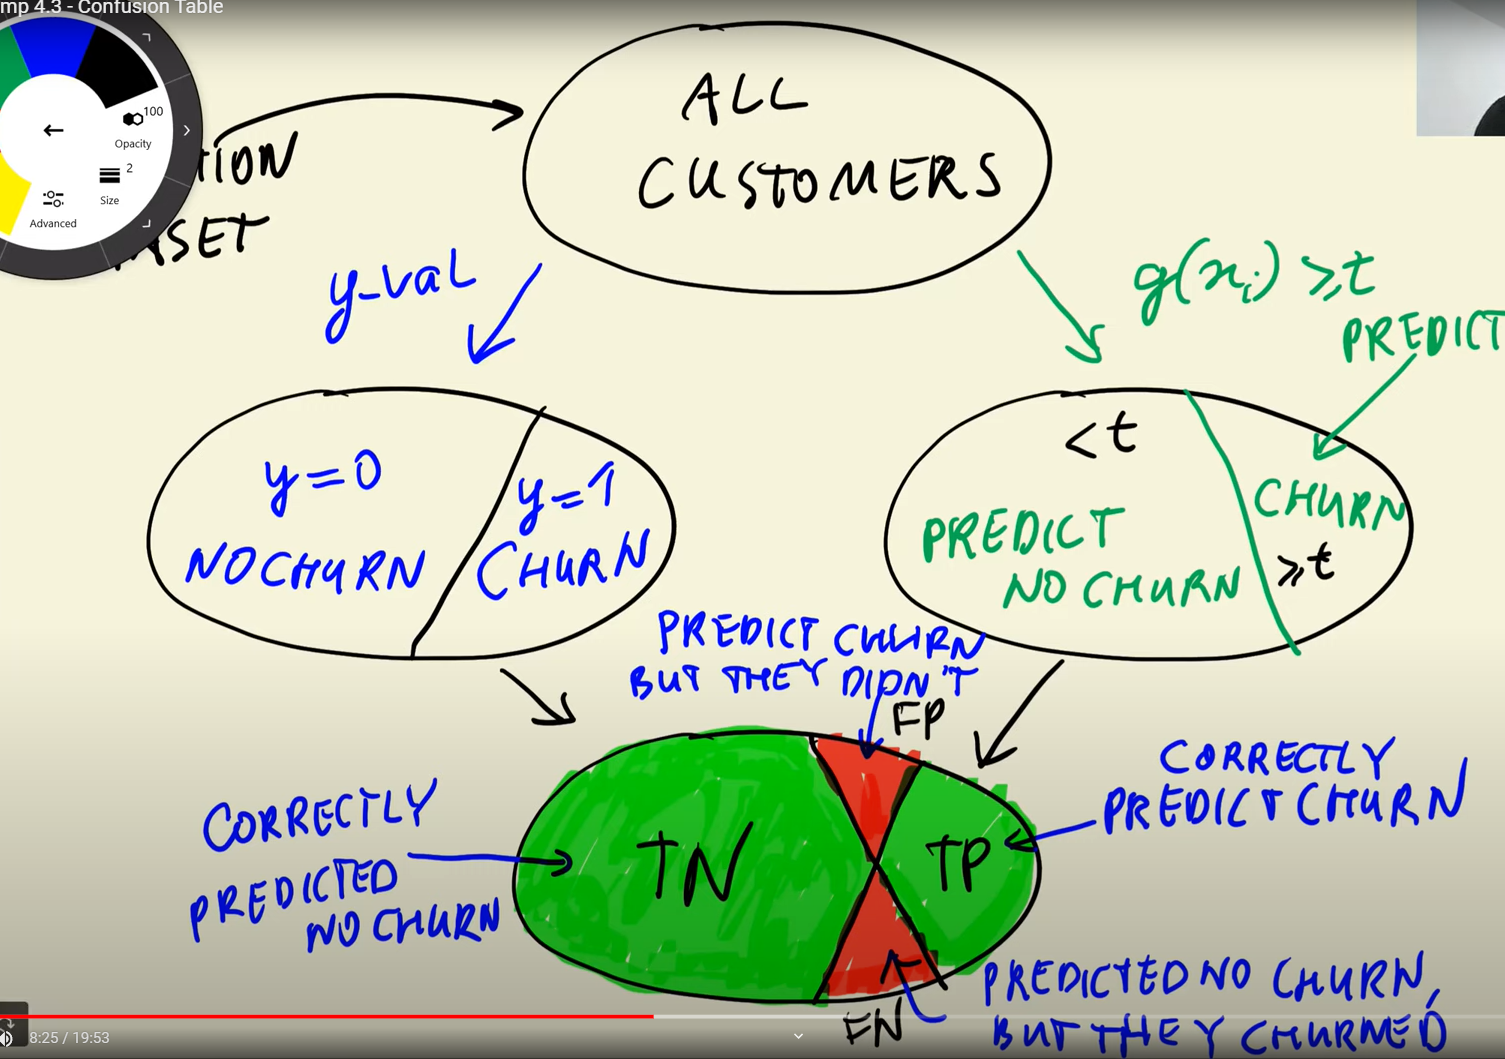 mp 4.3 - Confusion Table
100
Opacity
2
Size
Advanced
TION
SET
ALL
CUSTOMERS
y-val
g(xi) ⩾t
PREDICT
y=0
NO CHURN
y=1
CHURN
<t
PREDICT
NO CHURN
CHURN
⩾t
PREDICT CHURN
BUT THEY DIDN'T
FP
CORRECTLY
PREDICT CHURN
CORRECTLY
PREDICTED
NO CHURN
TN
TP
FN
PREDICTED NO CHURN,
BUT THEY CHURNED
8:25 / 19:53